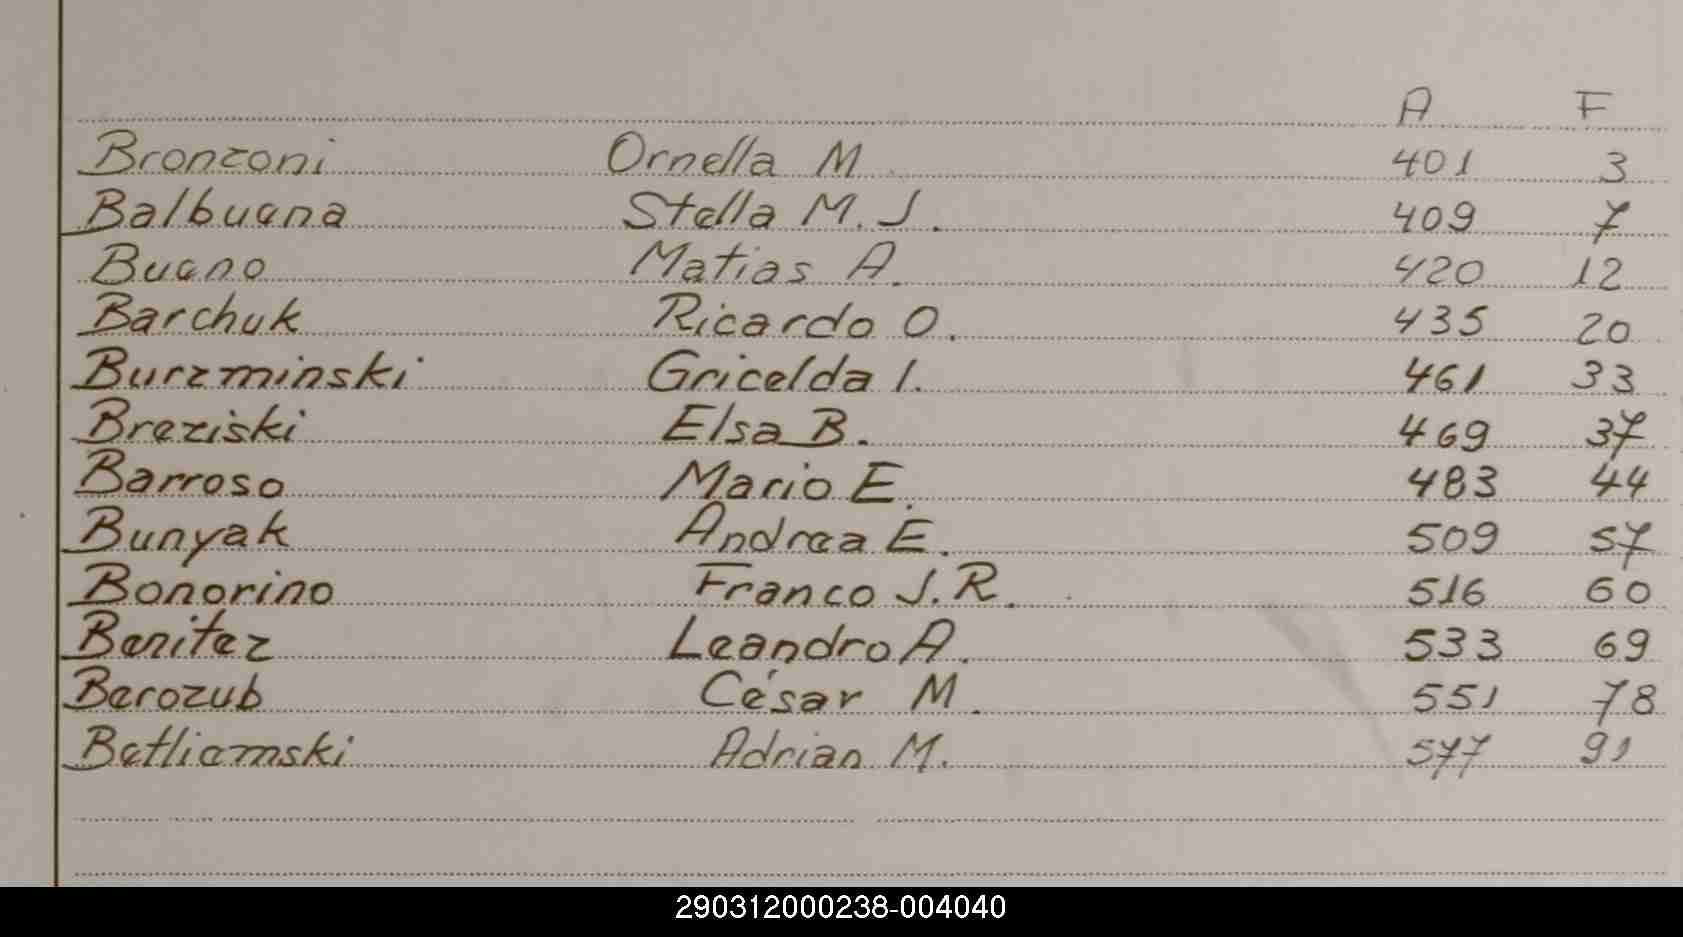 A F
Bronzoni Ornella M 401 3
Balbuena Stella M. J. 409 7
Bueno Matias A. 420 12
Barchuk Ricardo O. 435 20
Burzminski Gricelda I. 461 33
Breziski Elsa B. 469 37
Barroso Mario E. 483 44
Bunyak Andrea E. 509 57
Bonorino Franco J. R. 516 60
Benitez Leandro A. 533 69
Berozub César M. 551 78
Betliemski Adrian M. 577 91
290312000238-004040